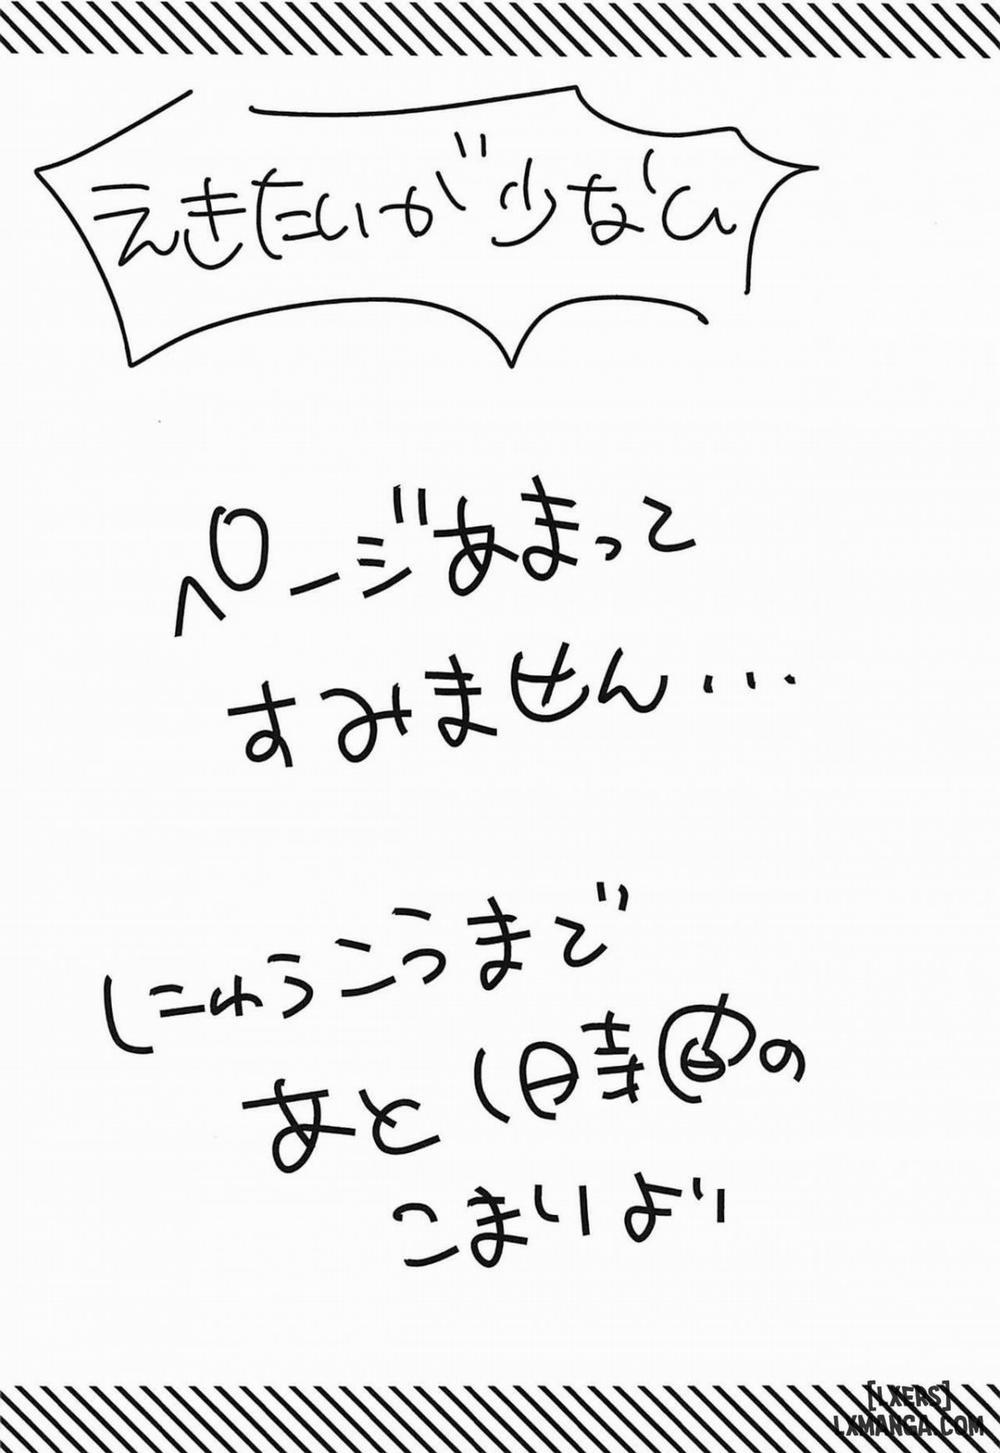 えきたいが少ない
ページあまって
すみません…
にゅうこうまで
あと1時間の
こまいより
[LXERS]
LXMANGA.COM